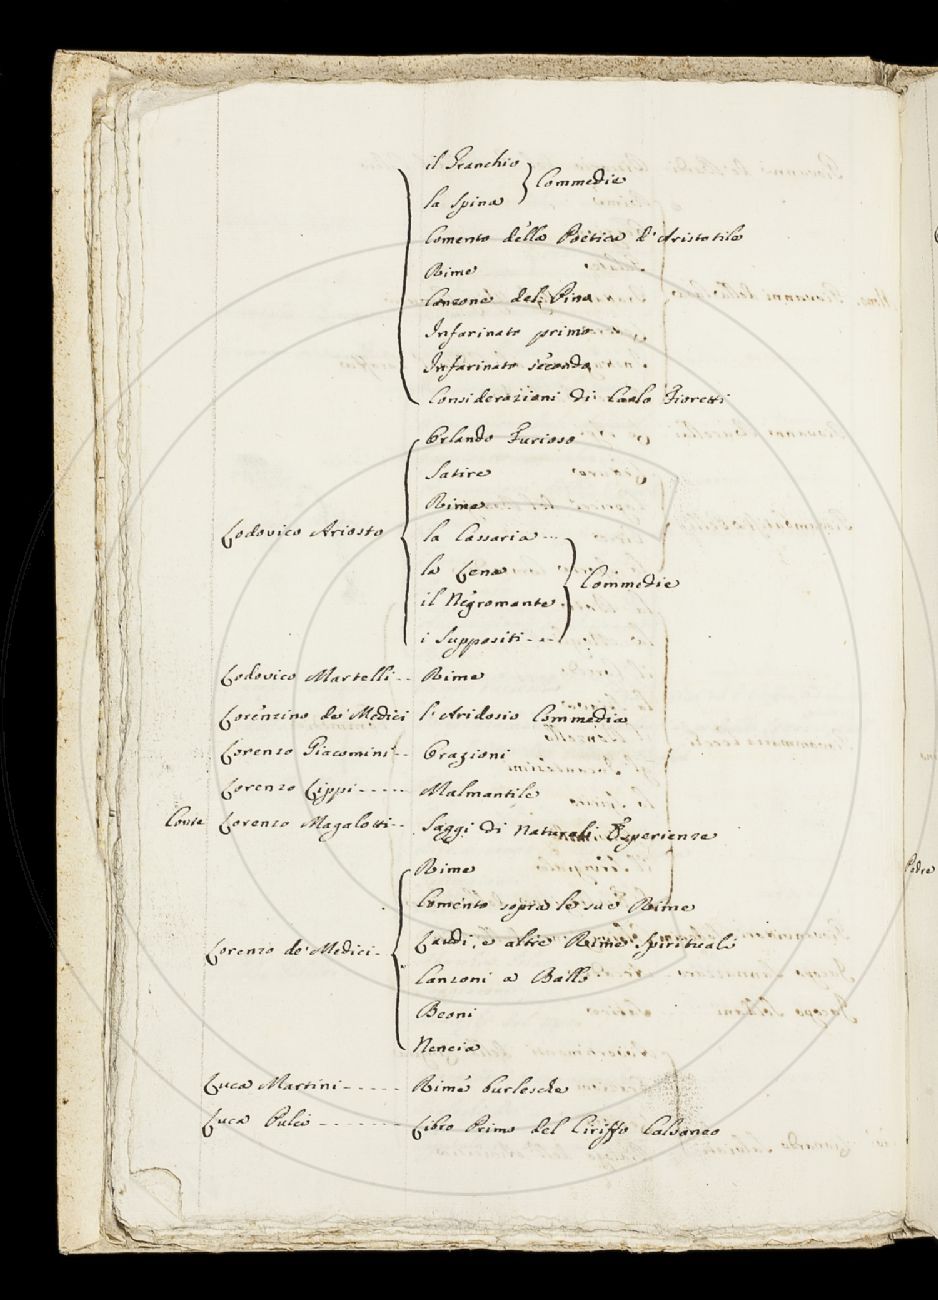 il Granchio
la Spina } Commedie
Comento della Poetica d'Aristotile
Rime
Canzone del Pino
Infarinato primo
Infarinato secondo
Considerazioni di Carlo Fioretti
Orlando Furioso
Satire
Rime
Lodovico Ariosto
la Cassaria
la Lena
il Negromante
i Suppositi
Commedie
Lodovico Martelli Rime
Lorenzino de' Medici l'Aridosio Commedia
Lorenzo Giacomini Orazioni
Lorenzo Lippi Malmantile
Conte Lorenzo Magalotti Saggi di Naturali Esperienze
Rime
Comento sopra le sue Rime
Lorenzo de' Medici
Laudi, e altre Rime Spirituali
Canzoni a Ballo
Beoni
Nencia
Luca Martini Rime burlesche
Luca Pulci Libro Primo del Ciriffo Calvaneo